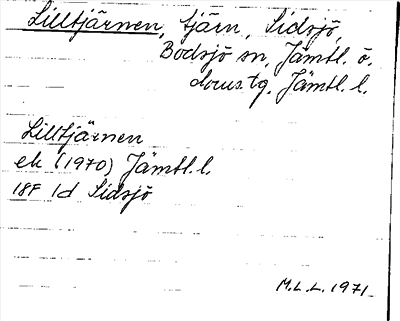 Lilltjärnen, tjärn, Sidsjö,
Bodsjö sn, Jämtl. ö.
doms.tg. Jämtl. l.
Lilltjärnen
ek (1970) Jämtl. l.
18F 1d Sidsjö
M.L.L. 1971